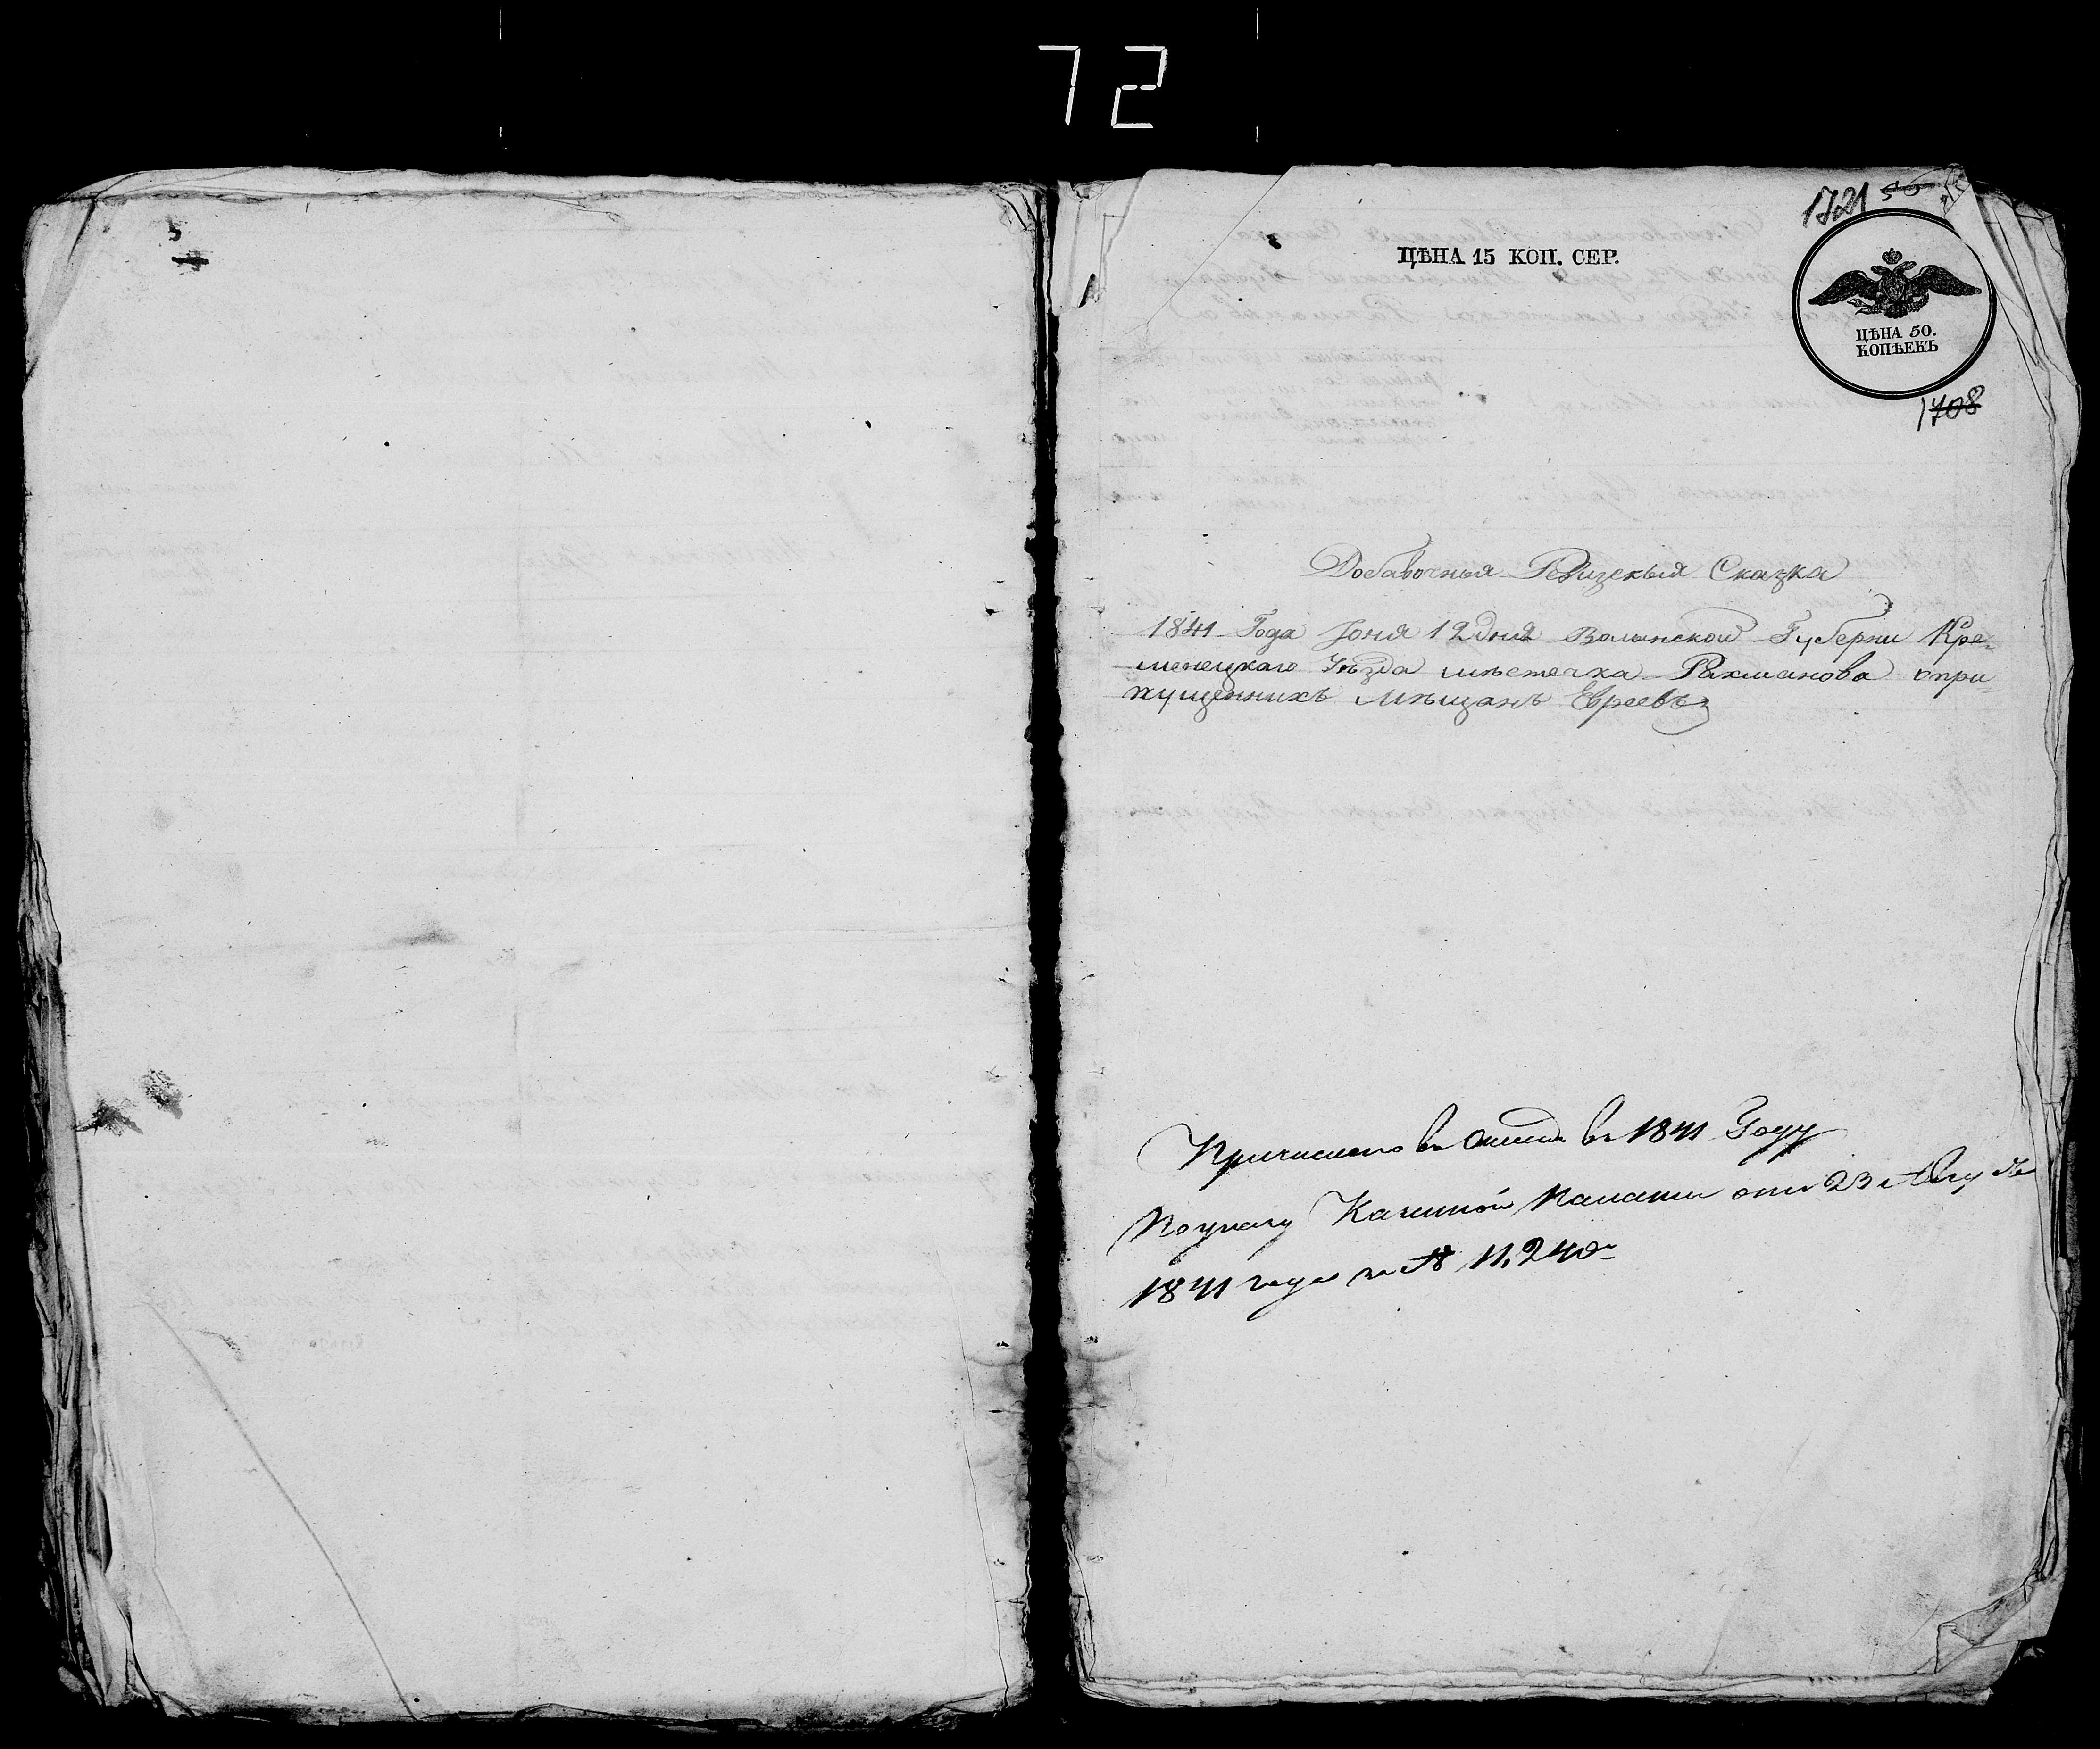 72
5
1721 56
ЦѢНА 15 КОП. СЕР.
ЦѢНА 50.
КОПѢЕКЪ
1708
Добавочныя Ревизскыя Сказка
1841 Года Іюня 12 дня Волынской Губерни Кре=
менецкаго Уѣзда мѣстечка Рахманова опри
пущенныхъ Мѣщанъ Евреевъ
Причислено въ окладъ въ 1841 Году
По указу Казенной Палаты отъ 23 Авгу
1841 года за № 11,240